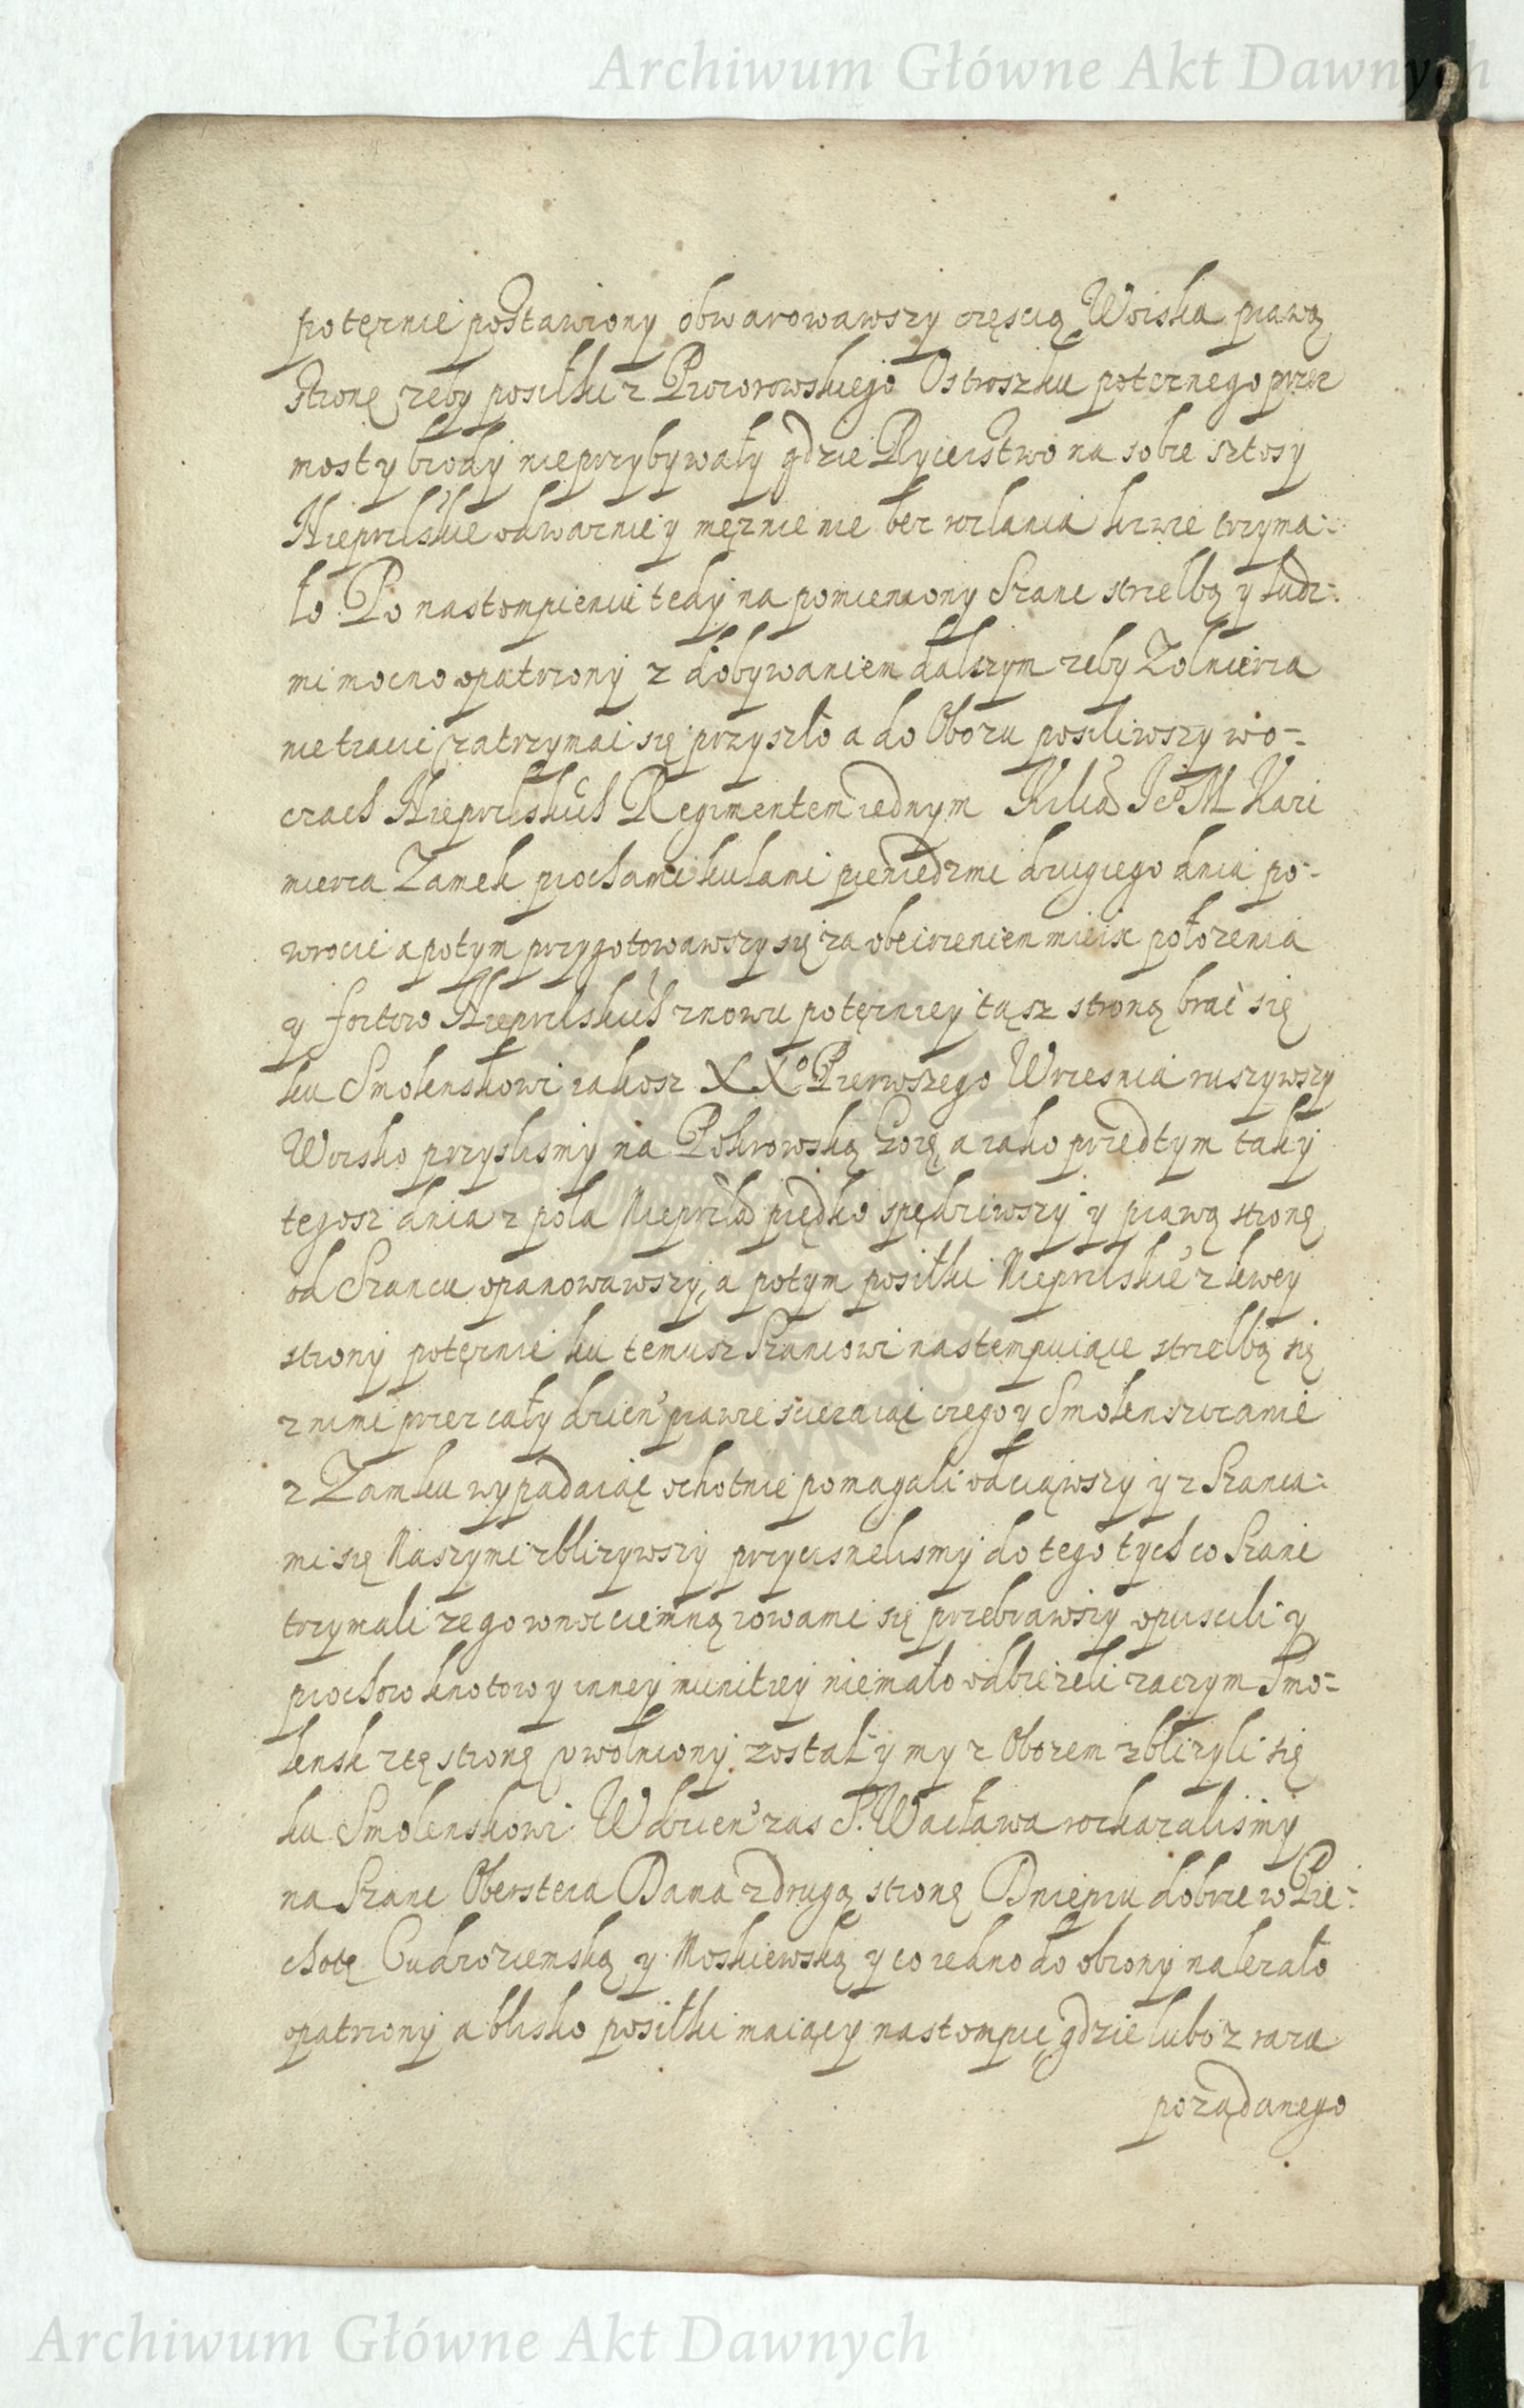 Archiwum Główne Akt Dawnych
potęznie postawiony obwarowawszy częscią Woiska prawą
stronę zeby posiłki z Prozorowskiego Ostroszku potęznego przez
mosty brody nieprzybywały gdzie Rycerstwo na sobie sztosy
Nieprzlskie odwaznie y męznie nie bez rozlania krwie trzyma:
ło Po nastompieniu tedy na pomieniony Szanc strzelbą y ludz:
mi mocno opatrzony z dobywaniem dalszym zeby Zolnierza
nie tracic zatrzymac się przyszło a do Obozu posiliwszy w o-
czach Nieprzlskich Regimentem iednym Xcia Jeo M Kazi
mierza Zamek prochami kulami pieniedzmi drugiego dnia po-
wrocic a potym przygotowawszy się za obeirzeniem mieisc położenia
y fortow Nieprzlskich znowu potęzniey tąsz stroną brac się
ku Smolenskowi iakosz XXo Pierwszego Wrzesnia ruszywszy
Woisko przyslismy na Pokrowską Gorę a iako przedtym taky
tegosz dnia z pola Nieprzla prędko spędziwszy y prawą stronę
od Szancu opanowawszy, a potym posiłki Nieprzlskie z lewey
strony potęznie ku temusz Szancowi nastempuiące strzelbą się
z nimi przez cały dzien prawie scieraiąc czego y Smolenszczanie
z Zamku wypadaiąc ochotnie pomagali odciąwszy y z Szanca:
mi się Naszymi zblizywszy przycisnelismy do tego tych co Szanc
trzymali ze go w noc ciemną rowami się przebrawszy opuscili y
prochow knotow y inney munitiey niemało odbiezeli zaczym Smo-
lensk z tę stronę uwolniony został y my z Obozem zblizyli się
ku Smolenskowi W dzien zas S. Wacława rozkazalismy
na Szanc Oberstera Dama z drugą stronę Dniepru dobrze w Pie:
chotę Cudzoziemską y Moskiewską y co iedno do obrony nalezało
opatrzony a blisko posiłki maiący nastompic gdzie lubo z razu
poządanego
Archiwum Główne Akt Dawnych